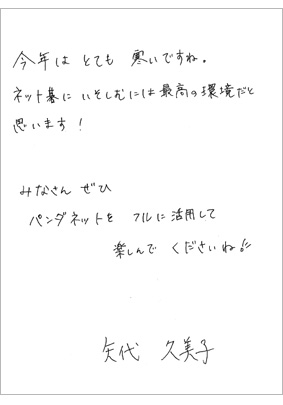 今年は とても 寒いですね。
ネット碁に いそしむには最高の環境だと
思います！
みなさん ぜひ
パンダネットを フルに活用して
楽しんで くださいね!!
矢代 久美子